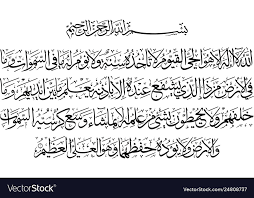 بسم الله الرحمن الرحيم
الله لا إله إلا هو الحي القيوم لا تأخذه سنة ولا نوم له ما في السموات وما
في الأرض من ذا الذي يشفع عنده إلا بإذنه يعلم ما بين أيديهم وما
خلفهم ولا يحيطون بشيء من علمه إلا بما شاء وسع كرسيه السموات
والأرض ولا يؤده حفظهما وهو العلي العظيم
VectorStock®
VectorStock.com/24808757